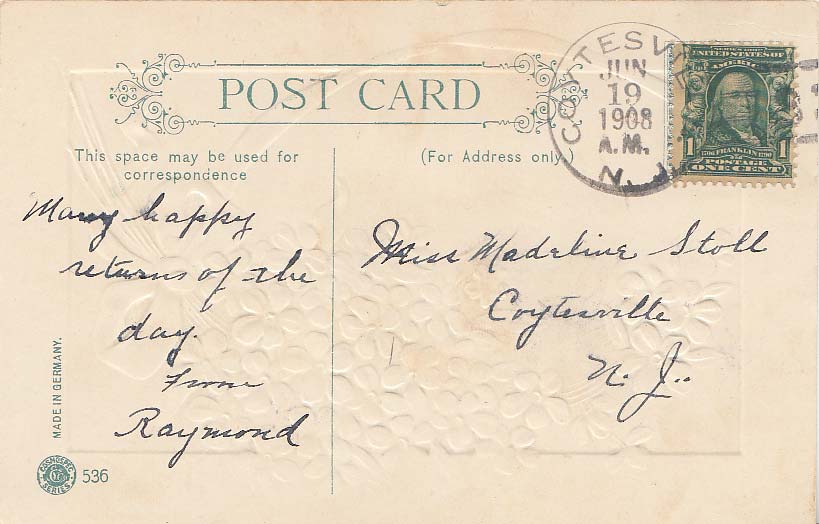 POST CARD
This space may be used for
correspondence
(For Address only.)
COYTESVILLE
JUN
19
1908
A.M.
N. J.
SERIES 1902
UNITED STATES OF
AMERICA
1706 FRANKLIN 1790
1 POSTAGE 1
ONE CENT
Many happy
returns of the
day.
From
Raymond
Miss Madeline Stoll
Coytesville
N. J.
MADE IN GERMANY.
SERIES
536